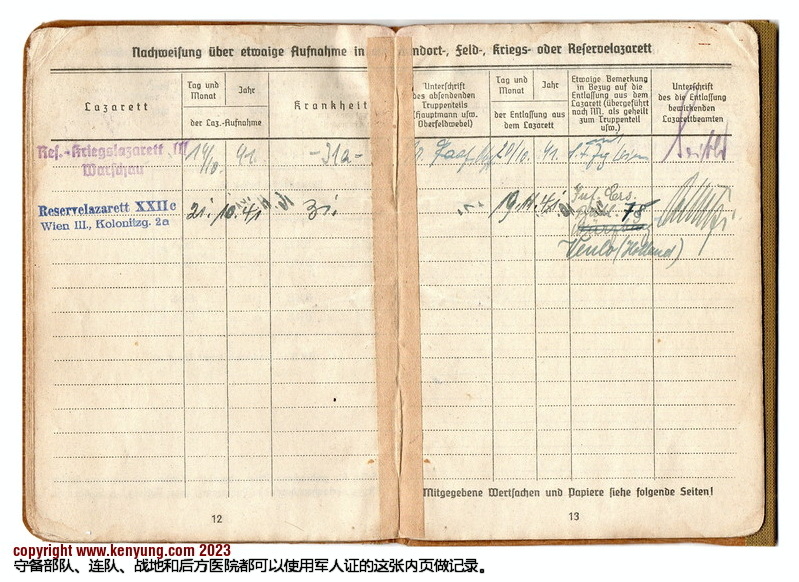 Nachweisung über etwaige Aufnahme in ndort-, Feld-, Kriegs- oder Reservelazarett
Lazarett
Tag und
Monat
Jahr
der Laz.-Aufnahme
Krankheit
Unterschrift
des absendenden
Truppenteils
(Hauptmann usw.
Oberfeldwebel)
Tag und
Monat
Jahr
der Entlassung aus
dem Lazarett
Etwaige Bemerkung
in Bezug auf die
Entlassung aus dem
Lazarett (übergeführt
nach NN. als geheilt
zum Truppenteil
usw.)
Unterschrift
des die Entlassung
bewirkenden
Lazarettbeamten
Res.-Kriegslazarett III
Warschau
14/10. 41. -31a- 20/10. 41.
Reservelazarett XXIIc
Wien III., Kolonitzg. 2a
21. 10. 41 31. 19. 11. 41. Inf. Ers.
78
Venlo (Holland)
Mitgegebene Wertsachen und Papiere siehe folgende Seiten!
12
13
copyright www.kenyung.com 2023
守备部队、连队、战地和后方医院都可以使用军人证的这张内页做记录。